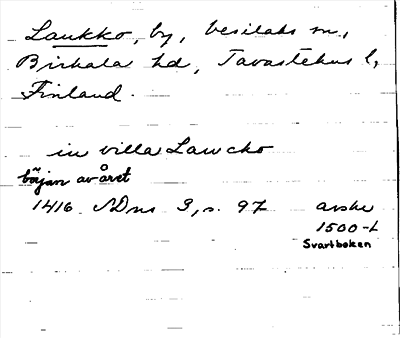 Laukko, by, Vesilaks sn.,
Birkala hd, Tavastehus l,
Finland.
in villa Lawcko
början av året
1416 NDns 3, s. 97 avskr
1500-t
Svartboken